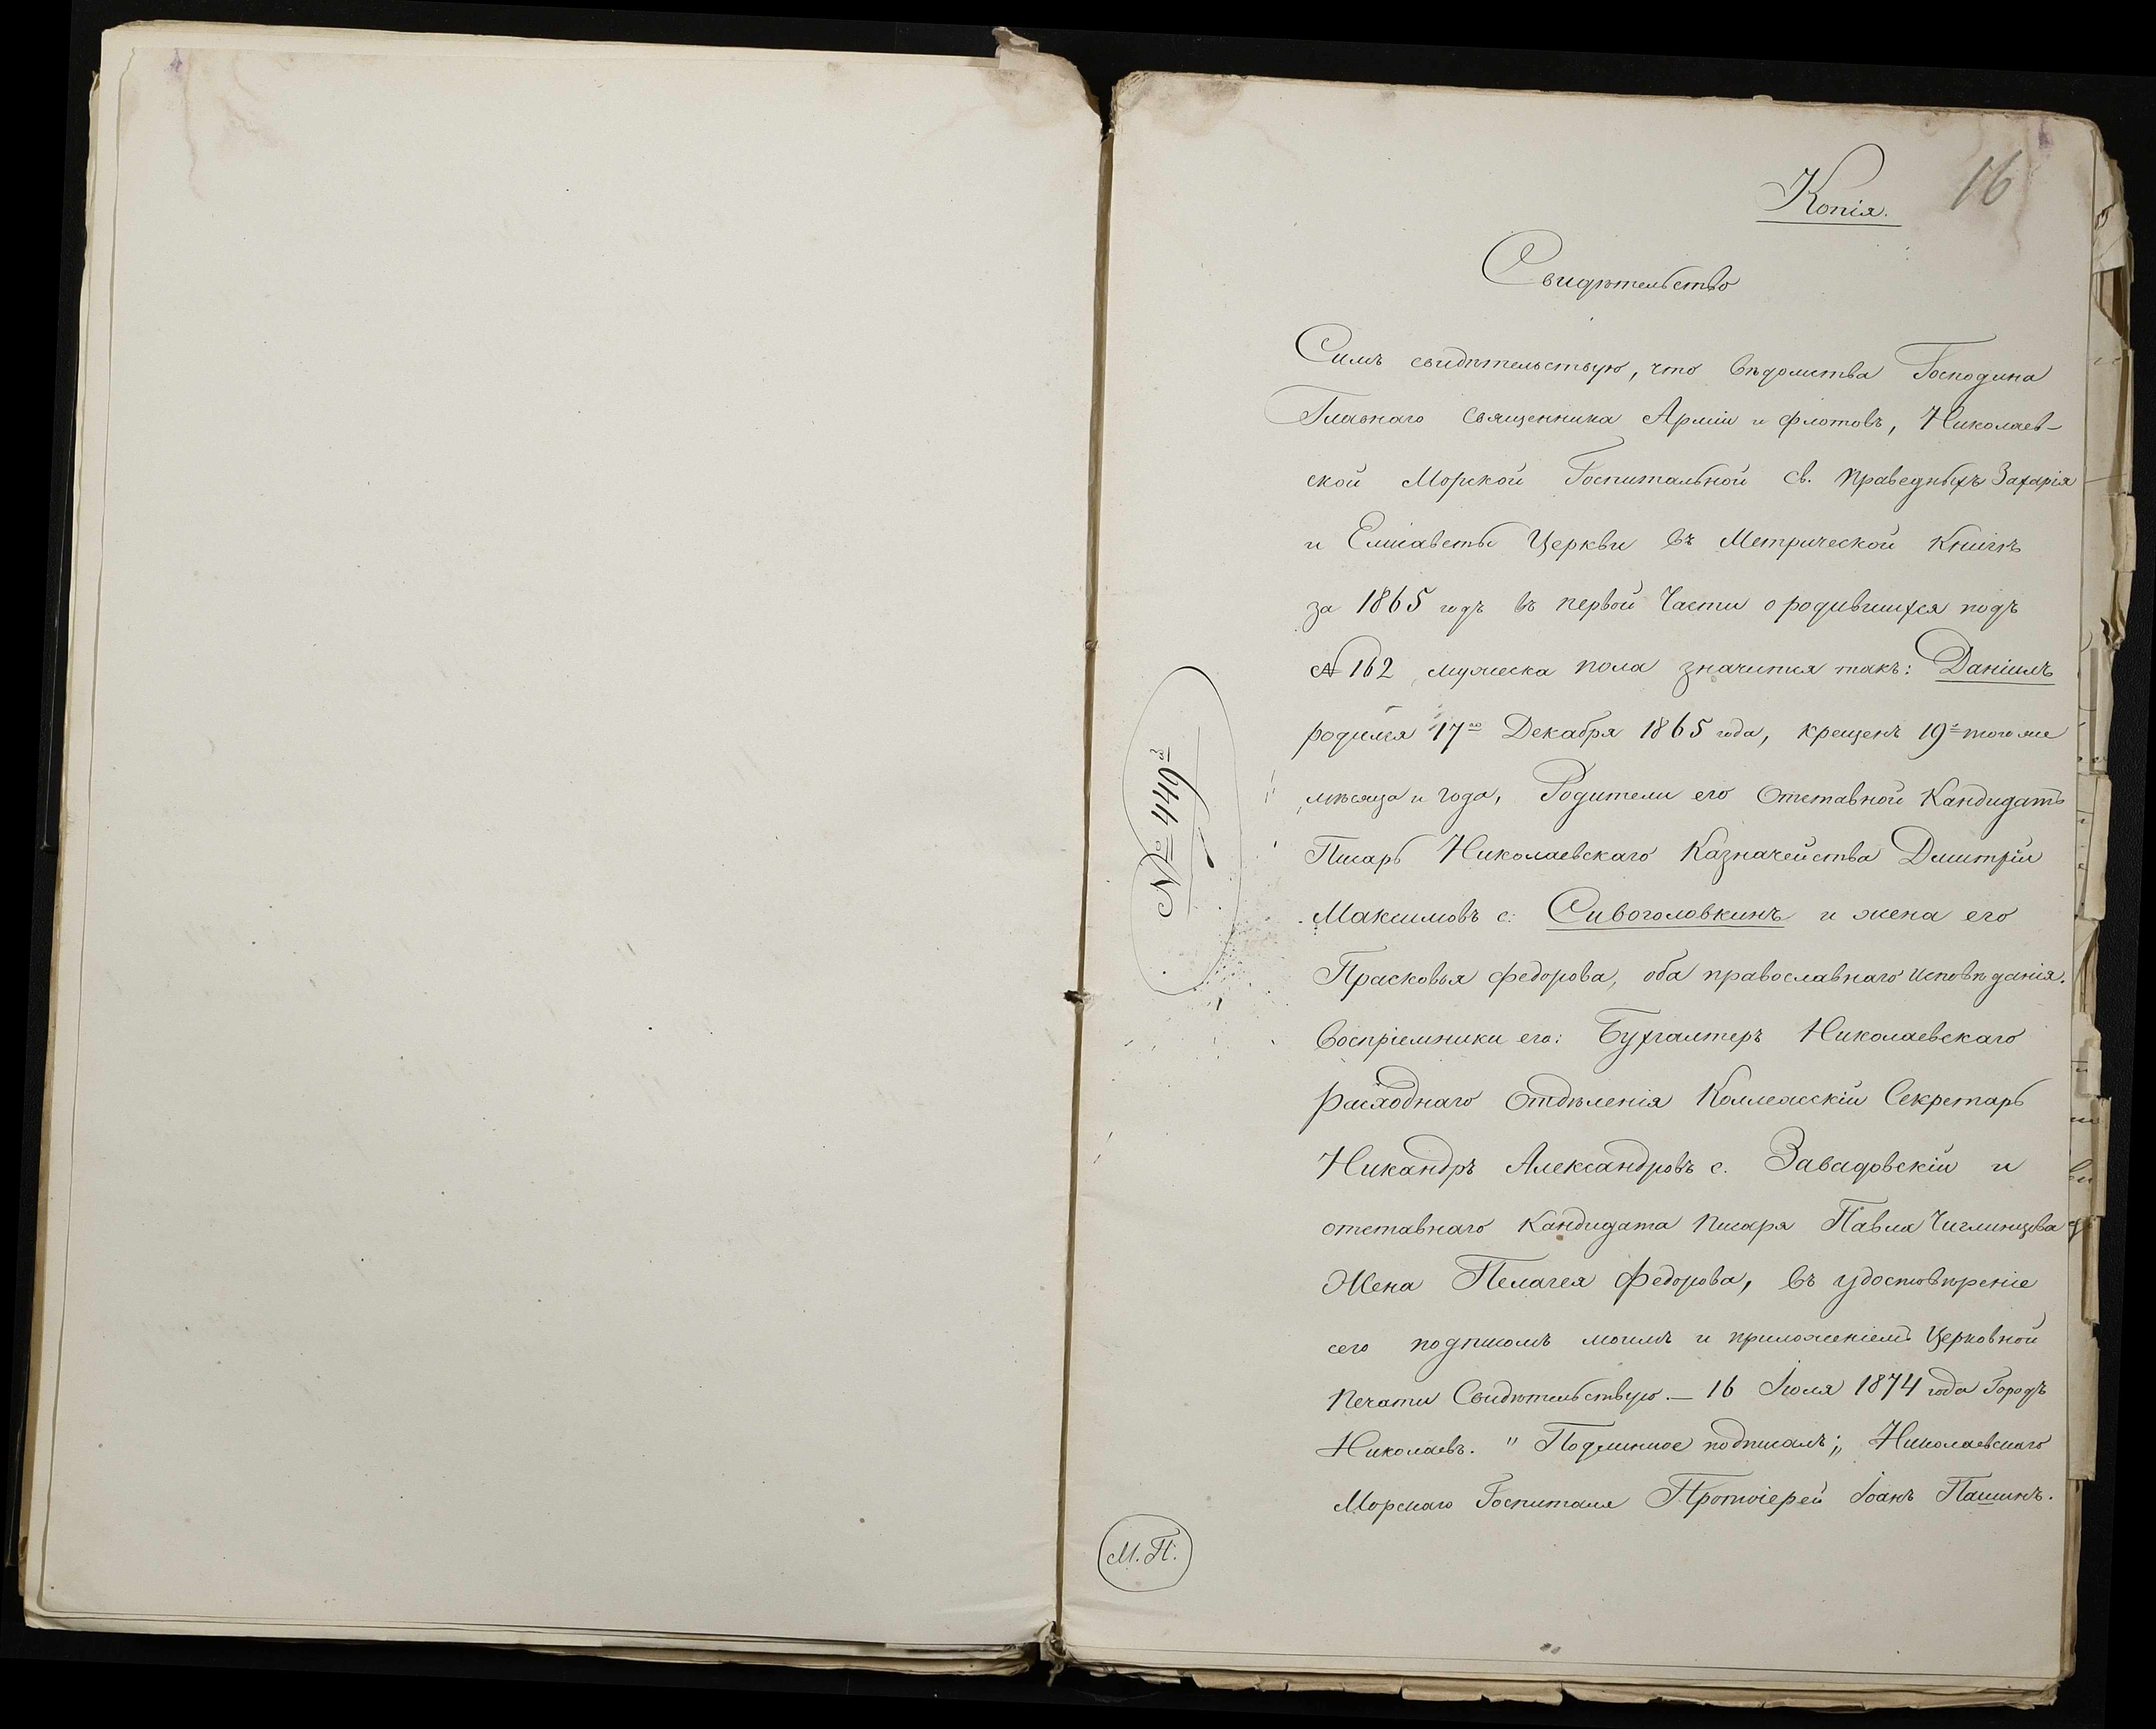 Копія.
16
Свидѣтельство
Симъ свидѣтельствую, что вѣдомства Господина
Главнаго Священника Арміи и флотовъ, Николаев-
ской Морской Госпитальной св. Праведныхъ Захарія
и Елисаветы Церкви въ Метрической Книгѣ
за 1865 годъ въ первой Части о родившихся подъ
№ 162 мужеска пола значится такъ: Даніилъ
родился 17го Декабря 1865 года, крещенъ 19г того же
мѣсяца и года, Родители его Отставной Кандидатъ
Писарь Николаевскаго Казначейства Дмитрій
Максимовъ с: Сивоголовкинъ и жена его
Прасковья Федорова, оба православнаго исповѣданія.
Воспріемники его: Бухгалтеръ Николаевскаго
расходнаго Отдѣленія Коллежскій Секретарь
Никандръ Александровъ с. Завадовскій и
отставнаго Кандидата Писаря Павла Чиглинцова
Жена Пелагея Федорова, въ удостовѣреніе
сего подписомъ моимъ и приложеніемъ Церковной
Печати Свидѣтельствую. — 16 Іюля 1874 года Городъ
Николаевъ. "Подлинное подписалъ;„ Николаевскаго
Морскаго Госпиталя Протоіерей Іоанъ Пашинъ.
М.П.